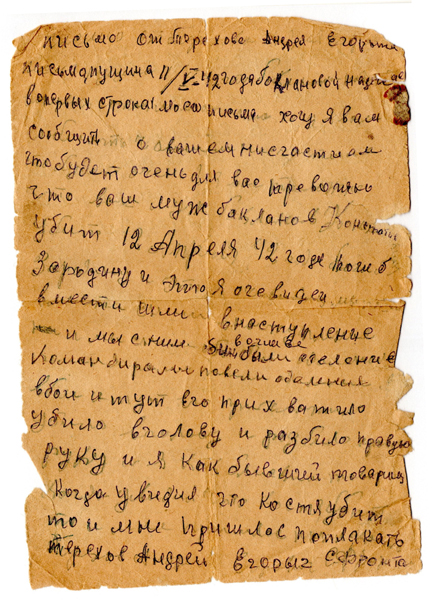 письмо от терехова Андрея Егорыча
письмапущина 11/V 42года баклановой
вопервых строках моего письма хочу я вам
сообщить о вашем нисчастием
что будет очень для вас тревожно
что ваш муж бакланов Констан
убит 12 Апреля 42 года погиб
Зародину и этто я очевидец
вмести шли внаступление
и мы с ним были отделоние
вогневе
Командирами повели отделения
вбои и тут его прихватило
убило вголову и разбило правую
руку и я как бывший товарищ
когда увидил что Костя убит
то и мне пришлос поплакать
терехов Андрей Егорыч с Фронта